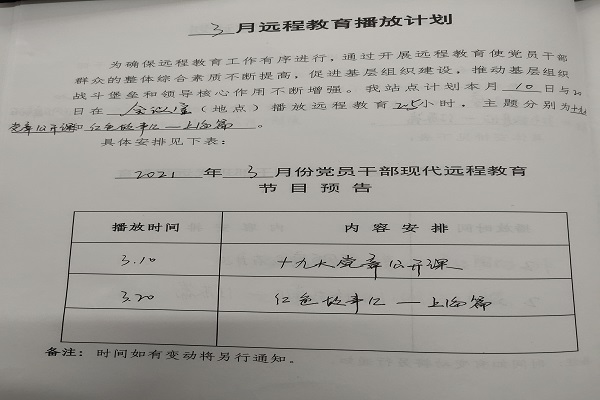 3月远程教育播放计划
为确保远程教育工作有序进行，通过开展远程教育使党员干部
群众的整体综合素质不断提高，促进基层组织建设，推动基层组织
战斗堡垒和领导核心作用不断增强。我站点计划本月10日与20
日在会议室（地点）播放远程教育2.5小时，主题分别为十九大
党章公开课和红色故事汇—上海篇。
具体安排见下表：
2021年3月份党员干部现代远程教育
节目预告
播放时间 内容安排
3.10 十九大党章公开课
3.20 红色故事汇—上海篇
备注：时间如有变动将另行通知。